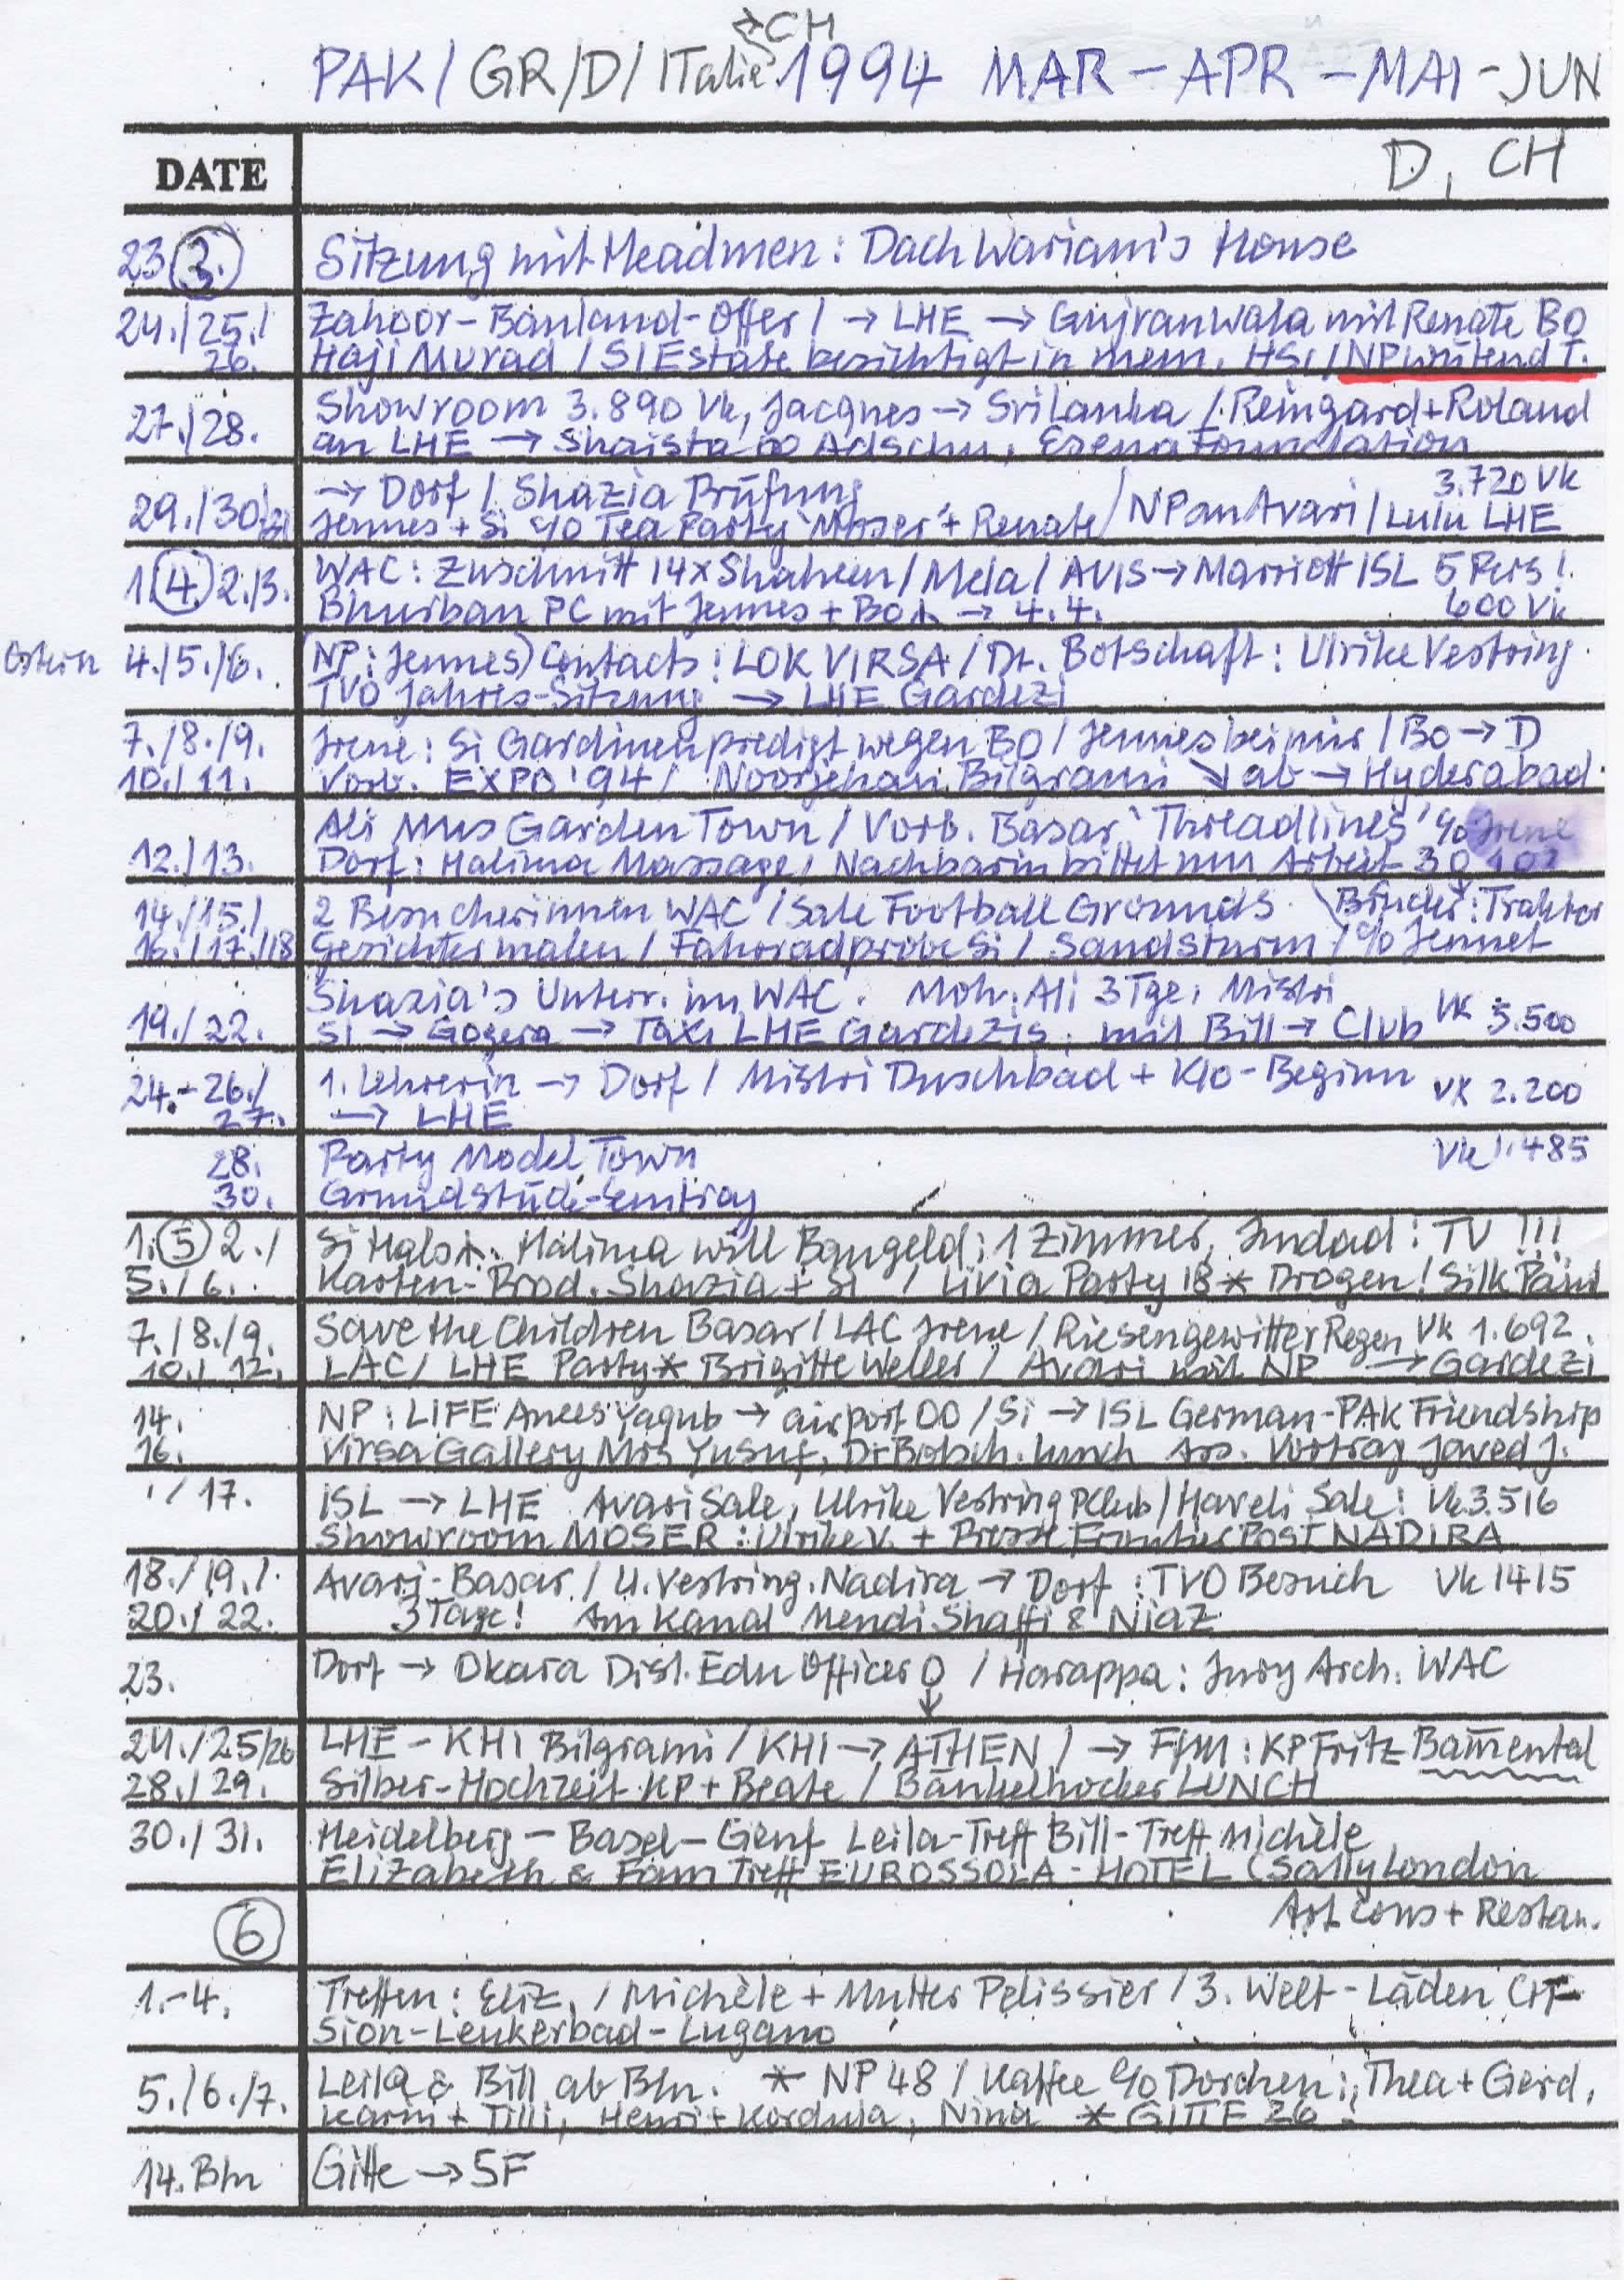 →CH
PAK/GR/D/ITalie 1994 MAR-APR-MAI-JUN
DATE D, CH
23 3. Sitzung mit Headmen: Dach Wariam's House
24./25./ Zahoor-Bauland-Offer/ → LHE → Gujranwala mit Renate BO
26. Haji Murad / SI Estate besichtigt in mem. HSi/NP wütend T.
27./28. Showroom 3.890 Vk, Jacques → Sri Lanka / Reingard+Roland
an LHE → Shaista Adschu, Esena Foundation
→ Dorf / Shazia Prüfung 3.720 Vk
29./30. Jennes + Si c/o Tea Party 'Moser' + Renate / NP an Avari / Lulu LHE
1. 4. 2./3. WAC: Zuschnitt 14x Shaheen / Mela / AVIS → Marriott ISL 5 Pers!
Bhurban PC mit Jennes + Bo → 4.4. 600 Vk
Ostern 4./5./6. (NP: Jennes) Contacts: LOK VIRSA / Dt. Botschaft: Ulrike Vestring
TVO Jahres-Sitzung → LHE Gardezi
7./8./9. Irene: Si Gardinenpredigt wegen BO / Jennes bei mir / Bo → D
10./11. Vorb. EXPO '94 / Noorjehan Bilgrami ↘ ab → Hyderabad
Ali Mus Garden Town / Vorb. Basar 'Threadlines' c/o Irene
12./13. Dorf: Halima Massage, Nachbarin bittet um Arbeit 3
14./15./ 2 Besucherinnen WAC / Sale Football Grounds. Brücke: Traktor
16./17./18 Gesichter malen / Fahrradprobe Si / Sandsturm / c/o Jennet
Shazia's Unterr. im WAC. Moh. Ali 3 Tge, Mistri
19./22. SI → Gogera → Taxi LHE Gardezis, mit Bill → Club Vk 5.500
24.-26./ 1. Lehrerin → Dorf / Mistri Duschbad + Klo-Beginn VK 2.200
27. → LHE
28. Party Model Town Vk 1.485
30. Grundstück-Eintrag
1. 5 2./ Si Hals. Halima will Baugeld: 1 Zimmer, Imdad: TV !!!
5./6. Karten-Prod. Shazia + Si / Livia Party 18* Drogen! Silk Paint
7./8./9. Save the Children Basar / LAC Irene / Riesengewitter Regen Vk 1.692.
10./12. LAC/ LHE Party* Brigitte Weller / Avari mit NP → Gardezi
14. NP: LIFE Anees Yaqub → airport OO / Si → ISL German-PAK Friendship
16. Virsa Gallery Mrs Yusuf, Dt Botsch. lunch Ass. Vortrag Javed J.
/17. ISL → LHE Avari Sale, Ulrike Vestring PClub / Haveli Sale: Vk 3.516
Showroom MOSER: Ulrike V. + Presse Frontier Post NADIRA
18./19./ Avari-Basar / U. Vestring. Nadira → Dorf: TVO Besuch Vk 1415
20./22. 3 Tage! Am Kanal Mendi Shaffi & Niaz
23. Dorf → Okara Dist. Edu Officer ♀ / Harappa: Jury Arch. WAC
24./25/26 LHE-KHI Bilgrami / KHI → ATHEN / → F/M: KP Fritz Bammental
28./29. Silber-Hochzeit KP + Beate / Bänkelhocker LUNCH
30./31. Heidelberg-Basel-Genf Leila-Treff Bill-Treff Michèle
Elizabeth & Fam Treff EUROSSOLA-HOTEL (Sally London
6 Art Cons + Restau.
1.-4. Treffen: Eliz. / Michèle + Mutter Pelissier / 3. Welt-Läden CH
Sion-Leukerbad-Lugano
5./6./7. Leila & Bill ab Bln. * NP 48 / Kaffee c/o Dorchen: Thea + Gerd,
Karin + Tilli, Henri + Kordula, Nina * GITTE 26!
14. Bln Gitte → SF